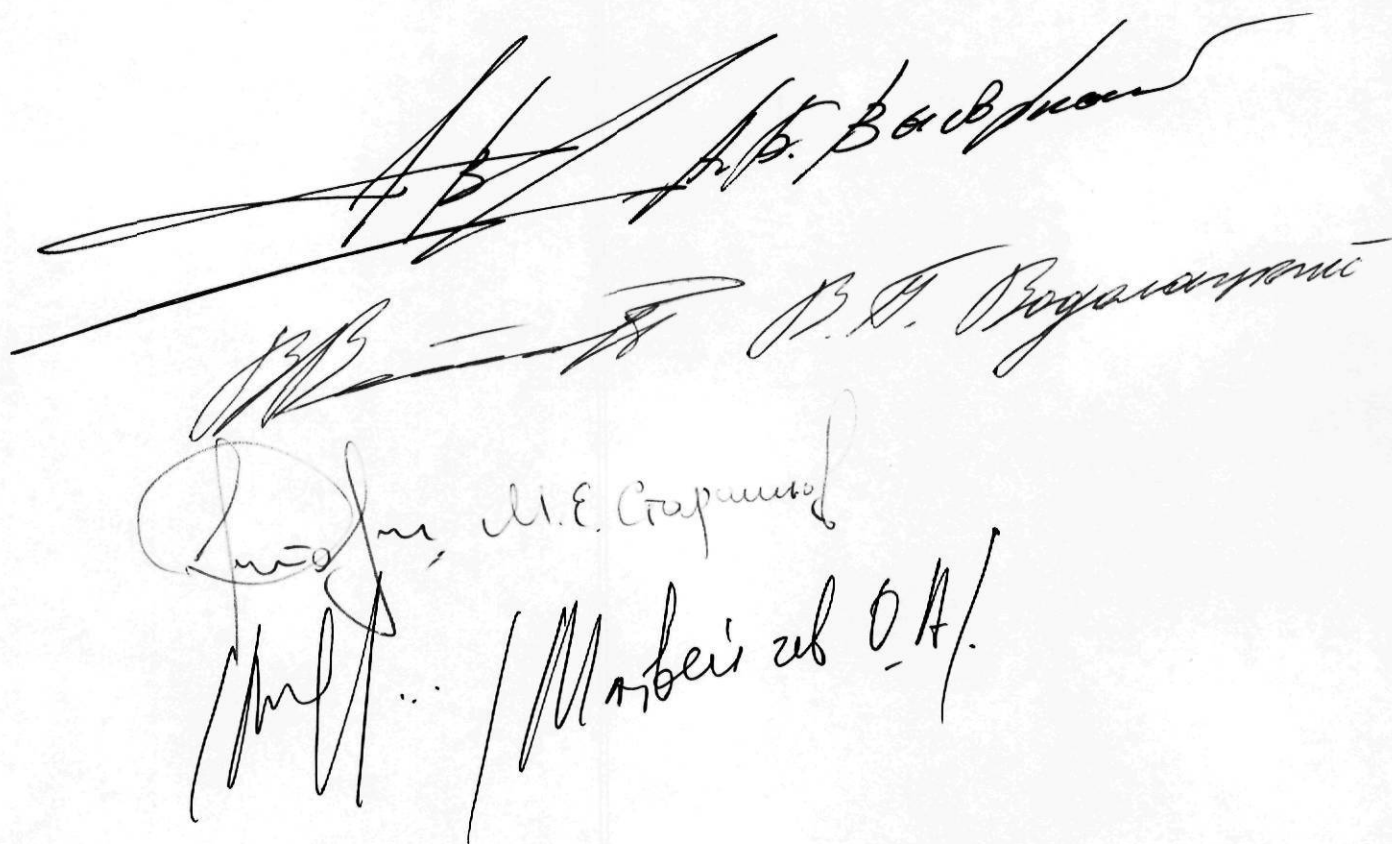 А.Б. Выборный
В.П. Водолацкий
М.Е. Старшинов
/Матвейчев О.А/.